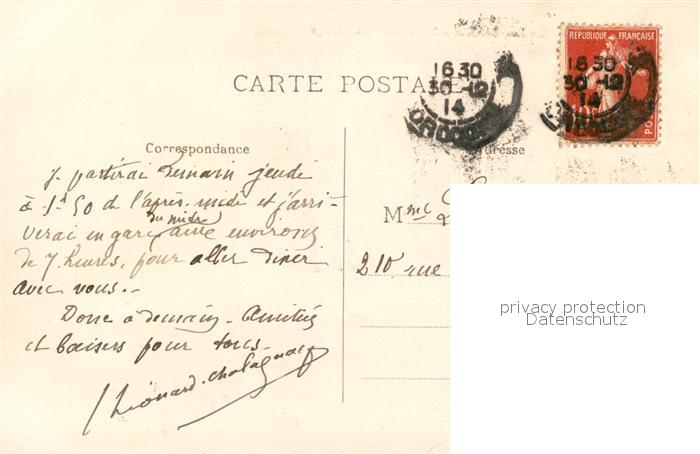 REPUBLIQUE FRANÇAISE
16 30
30 -12
14
16 30
30 -12
14
CARTE POSTALE
Correspondance
Adresse
Je partirai demain jeudi
à 1h 50 de l'après-midi et j'arri-
verai en gare du midi aux environs
de 7 heures, pour aller diner
avec vous.-
Donc à demain - Amitiés
et baisers pour tous-
Mme
210. rue
privacy protection
Datenschutz